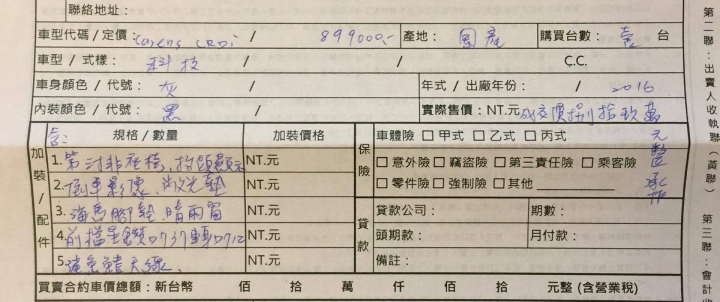 聯絡地址：
車型代碼 / 定價： / 899000.- 產地： 國產 購買台數： 壹 台
車型 / 式樣： 科技 / / C.C.
車身顏色 / 代號： 灰 / 年式 / 出廠年份： / 2016
內裝顏色 / 代號： 黑 / 實際售價：NT.元 成交價捌拾玖萬元整
加裝/配件 規格 / 數量 加裝價格 保險 車體險 □ 甲式 □ 乙式 □ 丙式
1. 抬頭顯示 NT.元 □ 意外險 □ 竊盜險 □ 第三責任險 □ 乘客險
2. 倒車影像、 NT.元 □ 零件險 □ 強制險 □ 其他
3. 海馬腳墊 晴雨窗 NT.元 貸款 貸款公司： 期數：
4. 前擋 NT.元 頭期款： 月付款：
5. 鯊魚鰭天線、 NT.元 備註：
買賣合約車價總額：新台幣 佰 拾 萬 仟 佰 拾 元整 (含營業稅)
第二聯：出賣人收執聯（黃聯） 第三聯：會計